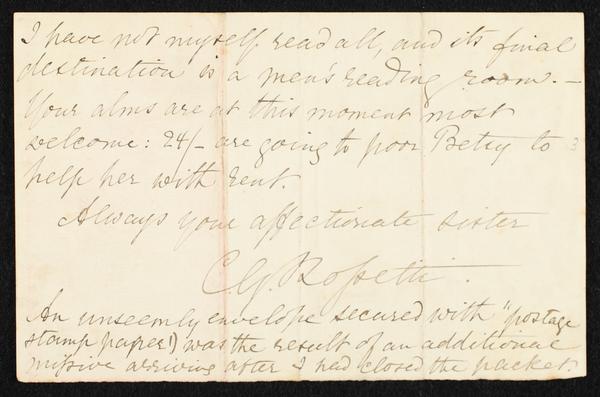 I have not myself read all, and its final
destination is a men's reading room. –
Your alms are at this moment most
welcome: 24/– are going to poor Betsy to
help her with rent.
Always your affectionate sister
C G. Rossetti.
An unseemly envelope secured with "postage
stamp paper!) was the result of an additional
missive arriving after I had closed the packet.